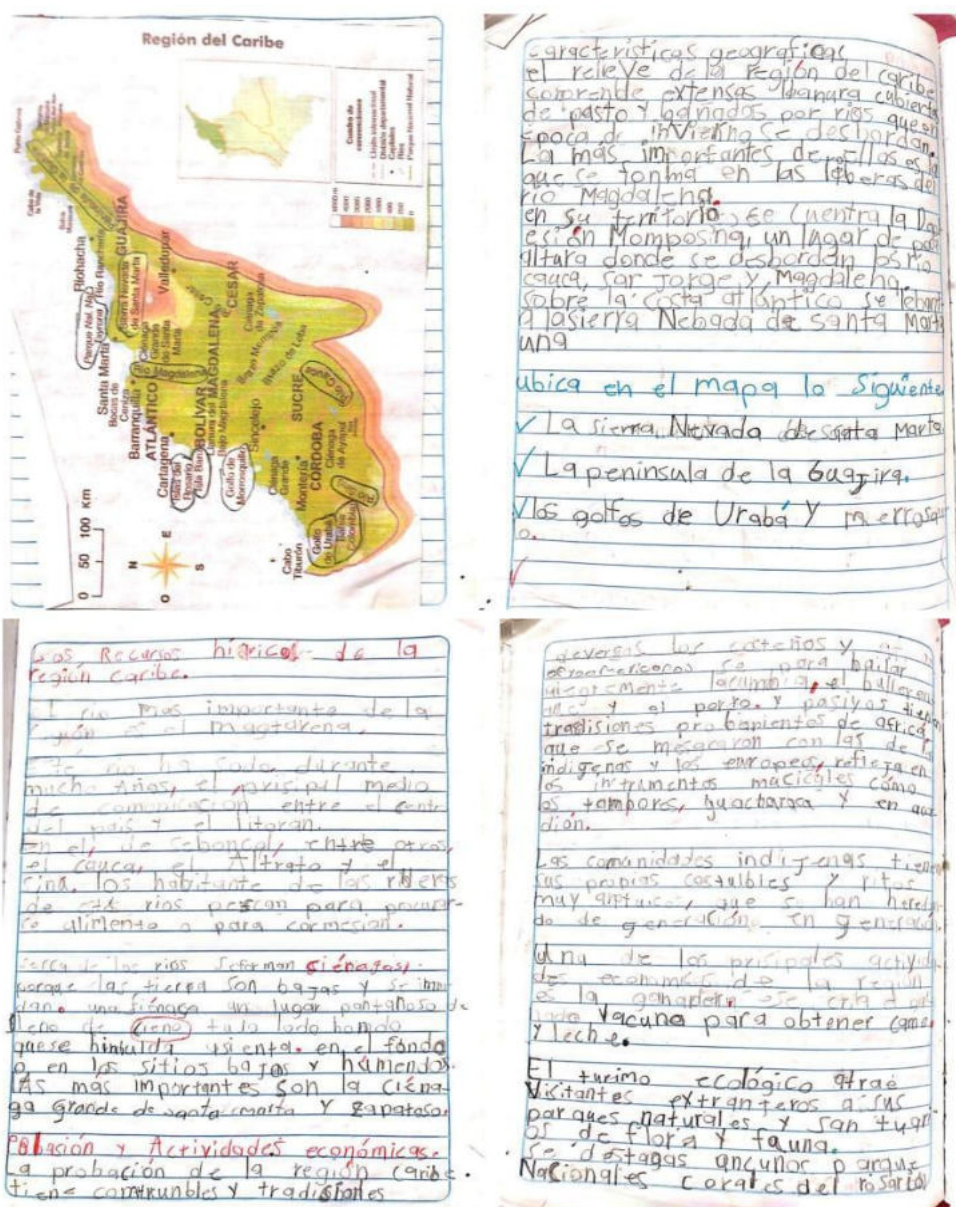 Región del Caribe
Cuadro de convenciones
Límite internacional
División departamental
Capitales
Ríos
Parque Nacional Natural
Cabo de la Vela
Riohacha
GUAJIRA
Parque Nal. Nat. Tayrona
Río Ranchería
Sierra Nevada de Santa Marta
Valledupar
Santa Marta
Ciénaga Grande de Santa Marta
Bocas de Ceniza
Barranquilla
ATLÁNTICO
Río Magdalena
MAGDALENA
CESAR
Ciénaga de Zapatosa
Cartagena
Islas del Rosario
Isla Barú
BOLÍVAR
Bajo Magdalena
Brazo de Loba
Golfo de Morrosquillo
Sincelejo
SUCRE
Río Cauca
Ciénaga Grande
Montería
CÓRDOBA
Ciénaga de Ayapel
Golfo de Urabá
Bahía Colombia
Cabo Tiburón
0 50 100 Km
N
O E
S
características geograficas
el relieve de la región del caribe
comprende extensas llanura cubierta
de pasto y bañados por ríos que en
epoca de invierno se desbordan.
La más importantes de ellos es la
que se forma en las riberas del
río Magdalena.
en su territorio, se cuentra la Dep
esión Momposina, un lugar de poca
altura donde se desbordan los río
cauca, san Jorge y Magdalena.
sobre la costa atlántico se lebant
a la sierra Nebada de santa Marta
una
ubica en el mapa lo Siguiente
✓ La sierra Nevada de santa Marta
✓ La peninsula de la Guajira.
✓ los golfos de Urabá y morrosqu
o.
Los Recursos hídricos de la
región caribe.
El río mas importante de la
región es el magtarena.
Este rio ha sado durante
mucho años, el prisipal medio
de comunicación entre el centr
del país y el litoran.
En el, de seboncal, entre otros,
el cauca, el Altrato y el
sinú. los habitante de las riberas
de este rios pescan para procurar
se alimento o para cormesian.
serca de los rios seforman siénagas,
porque las tierra son bagas y se inun
dan. una siénaga un lugar pantanoso de
lleno de cieno
en el fondo
o en los sitios bajos y húmendos.
LAs más importantes son la ciéna-
ga grande de santa marta Y zapatoso.
Poblasión y Actividades económicas.
La probación de la región caribe.
tiene comtrunbles y tradisiones
deversas los costeños y
afroamericocos se para bailar
alegremente lacumbia, el bulleren
gue y el porro. y pasivos tienen
tradisiones probanientos de africa
que se mesgraron con las de
indigenas y los europeos, refleja en
los intrumentos mucicales cómo
os tambores, guacharaca y en acor
dión.
Las comunidades indigenas tiene
sus propias costulbles y ritos
muy antuico, que se han hereda
do de generación en generación.
Una de los prisipales activida
des económicas de la región
es la ganaderia ese cria e gan
nado vacuno para obtener carne
y leche.
El turimo ecológico atrae
visitantes extranferos a sus
parques naturales y san tuari
os de flora y fauna.
Se destagas anqunos parque
Nacionales corales del rosario